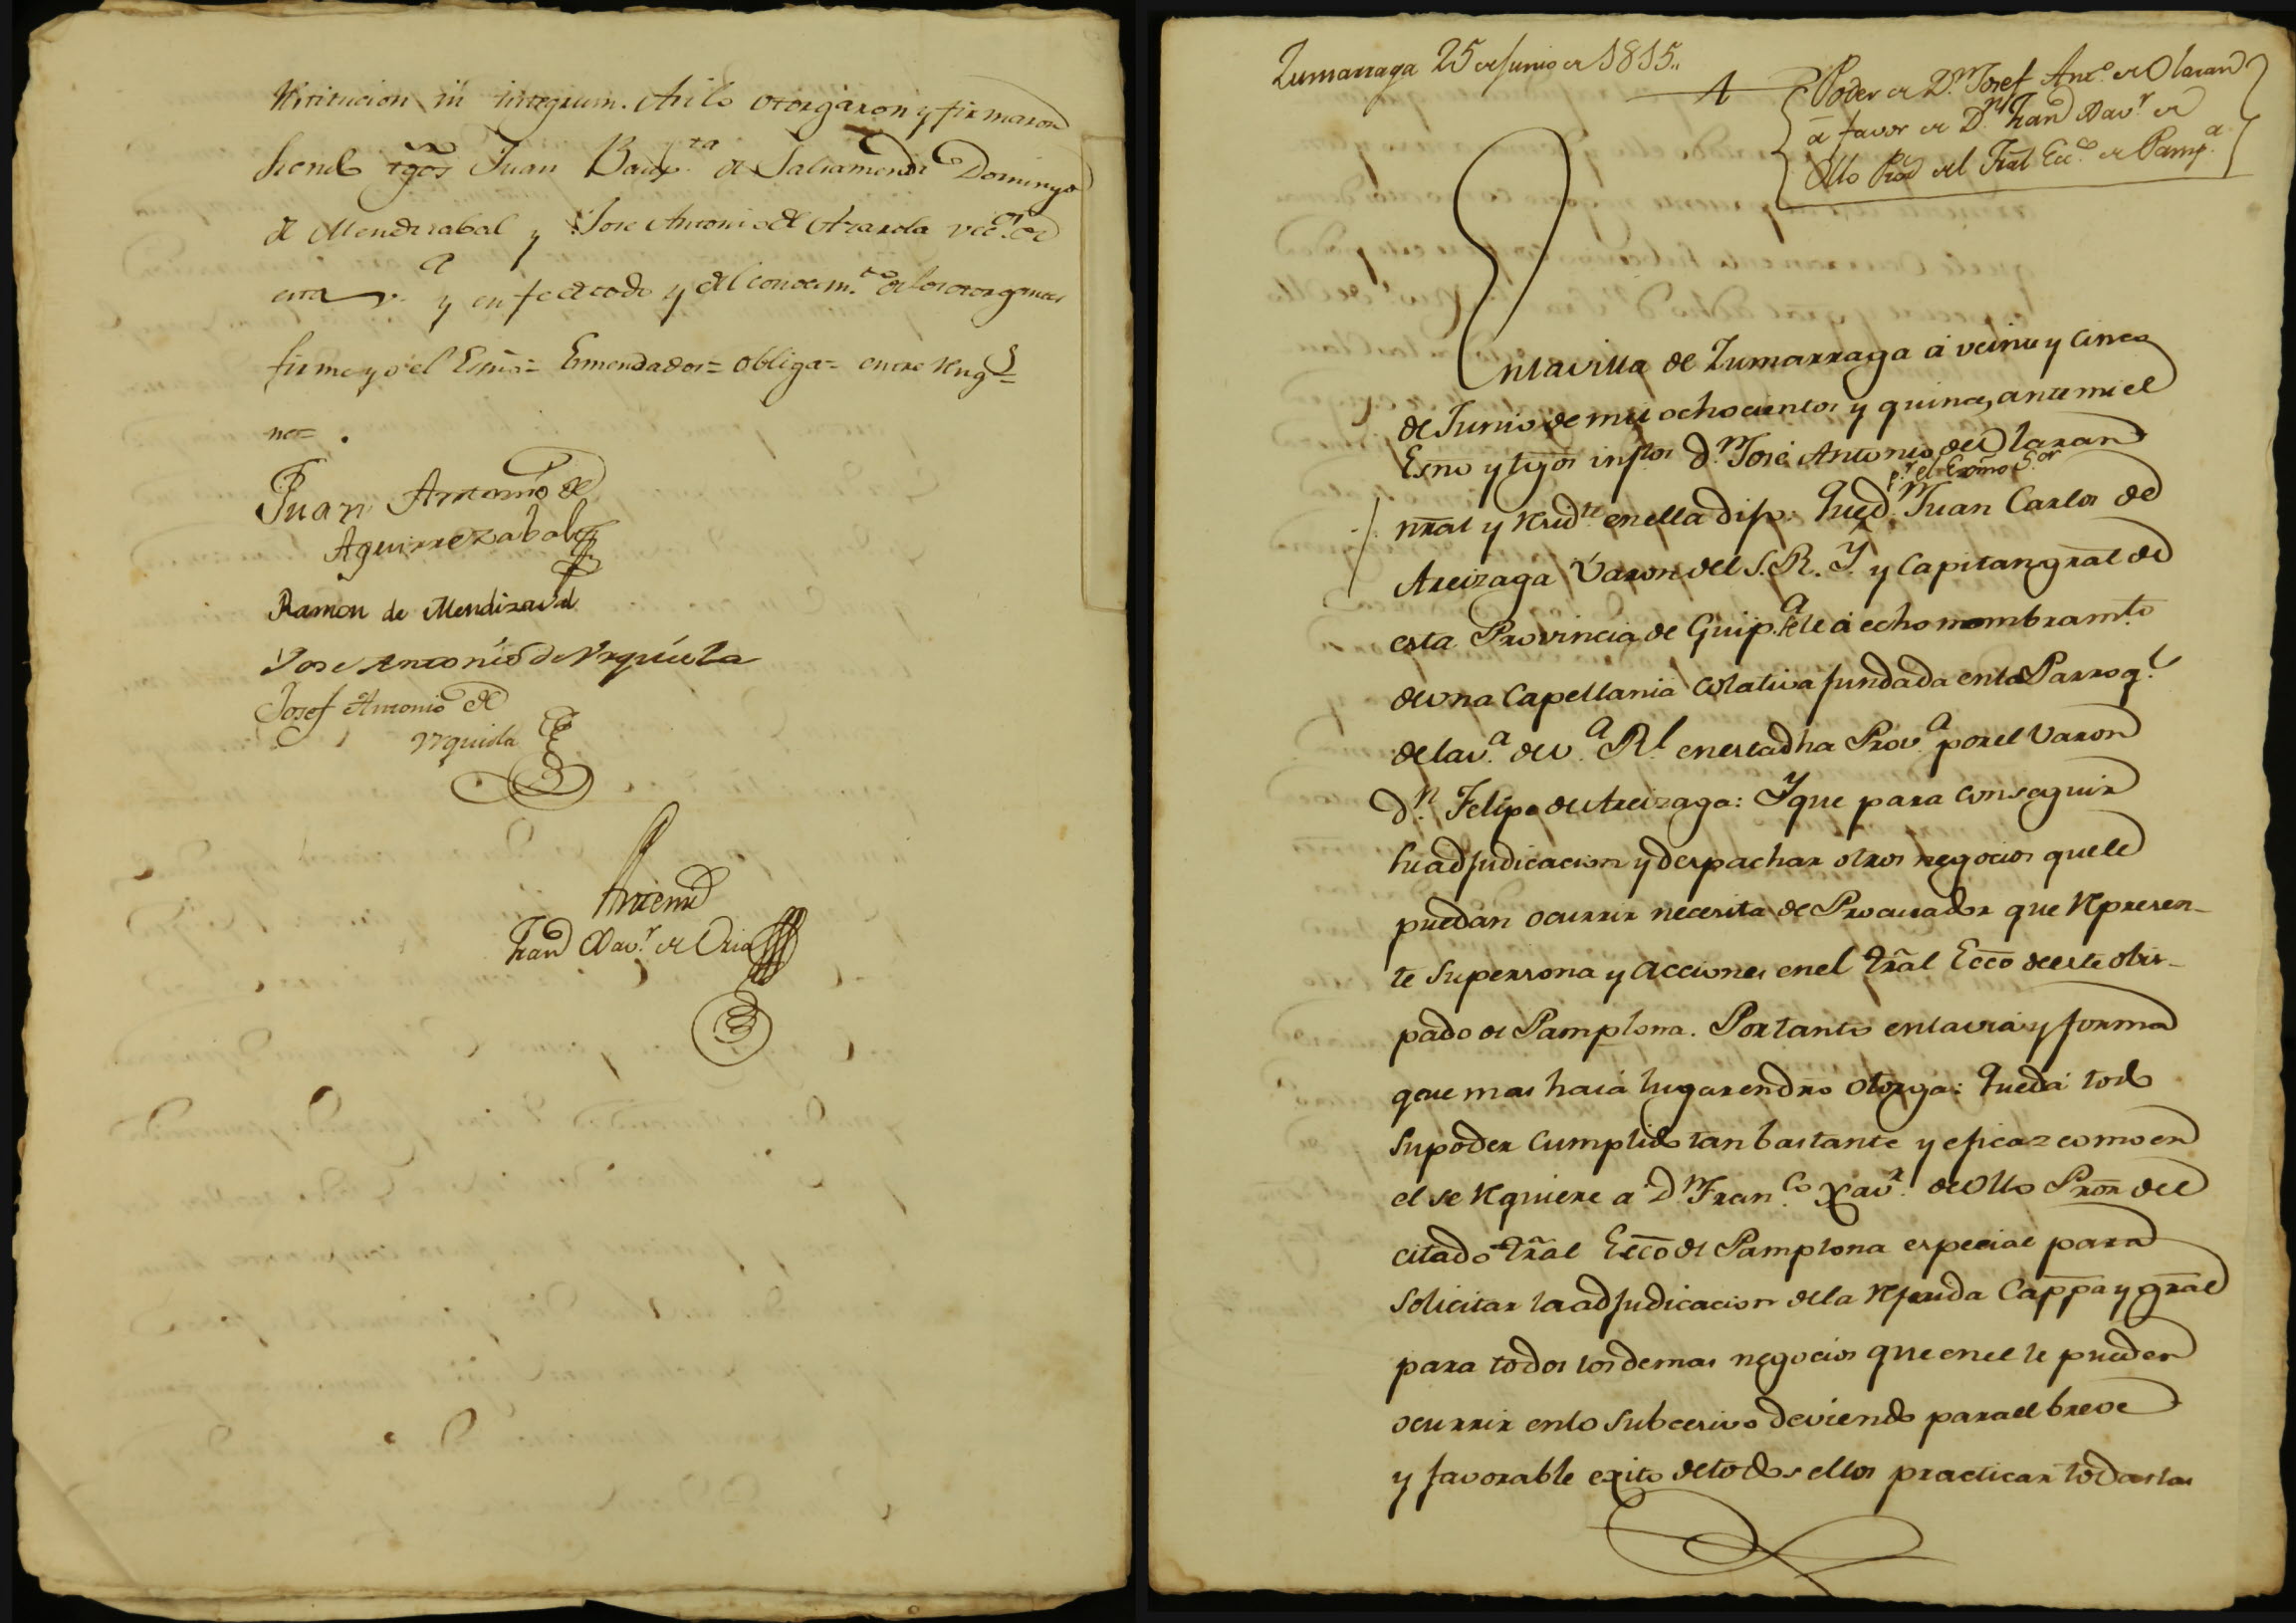 titucion in integrum. Asi lo otorgaron y firmaron
siendo tgos Juan Baup.ta de Saliamendi Domingo
de Mendizabal y Jose Antonio de Azarola vec.os de
esta v.a y en fe de todo y del conocim.to de los otorgantes
firme yo el Esno= Enmendados= obliga= entre reng.s=
no= .
Juan Antonio de
Aguirrezabal
Ramon de Mendizaval
Jose Antonio de Urquiola
Josef Antonio de
Urquiola
Antemi
Fran.co Xav.r de Oria
Zumarraga 25 de Junio de 1815..
Poder de D.n Josef Ant.o de Olaran
a favor de D.n Fran.co Xav.r de
Ollo Pror del Tral Ecc.co de Pamp.a
En la villa de Zumarraga á veinte y cinco
de Junio de mil ochocientos y quince, ante mi el
Esno y tgos infros d.n José Antonio de Olaran
p.r el Exmo S.or
nral y resid.te en ella dijo: Que d.n Juan Carlos de
Areizaga Varon del S. R. Y. y Capitan gral de
esta Provincia de Guip.a se le á echo nombram.to
de una Capellania Colativa fundada en la Parroq.l
de la v.a de V.a R.l en esta dha Prov.a por el Varon
d.n Felipe de Areizaga: Y que para conseguir
su adjudicacion y despachar otros negocios que le
puedan ocurrir necesita de Procurador que represen-
te su persona y acciones en el Tral Ecco de este obis-
pado de Pamplona. Por tanto en la via y forma
que mas haia lugar en dro otorga: Que da todo
su poder cumplido tan bastante y eficaz como en
el se requiere a D.n Fran.co Xav.r de Ollo Pror del
citado Tral Ecco de Pamplona especial para
solicitar la adjudicacion de la referida Cappa y gral
para todos los demas negocios que en el le pueden
ocurrir en lo subcesivo deviendo para el breve
y favorable exito de todos ellos practicar todas las